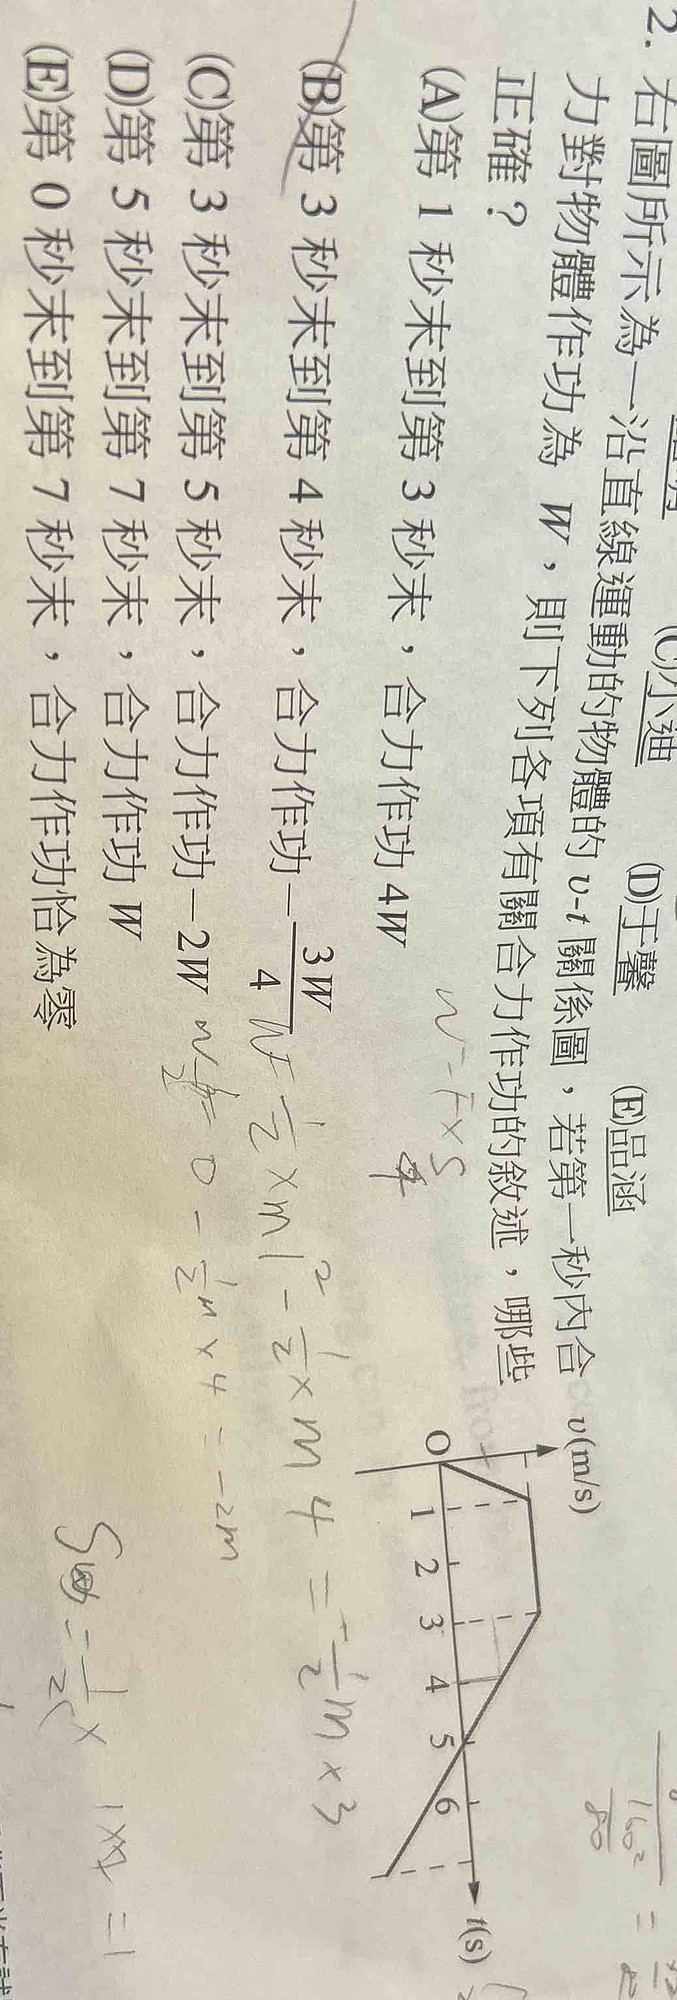 (C)小廸 (D)于馨 (E)品涵
2. 右圖所示為一沿直線運動的物體的 v-t 關係圖,若第一秒內合
力對物體作功為 W,則下列各項有關合力作功的敘述,哪些
正確?
(A)第 1 秒末到第 3 秒末,合力作功 4W
(B)第 3 秒末到第 4 秒末,合力作功−3W/4
(C)第 3 秒末到第 5 秒末,合力作功−2W
(D)第 5 秒末到第 7 秒末,合力作功 W
(E)第 0 秒末到第 7 秒末,合力作功恰為零
v(m/s)
O 1 2 3 4 5 6 t(s)
W=F×S
W= 1/2 ×m1² - 1/2 ×m4 = -1/2 m×3
= 0 - 1/2 m×4 = -2m